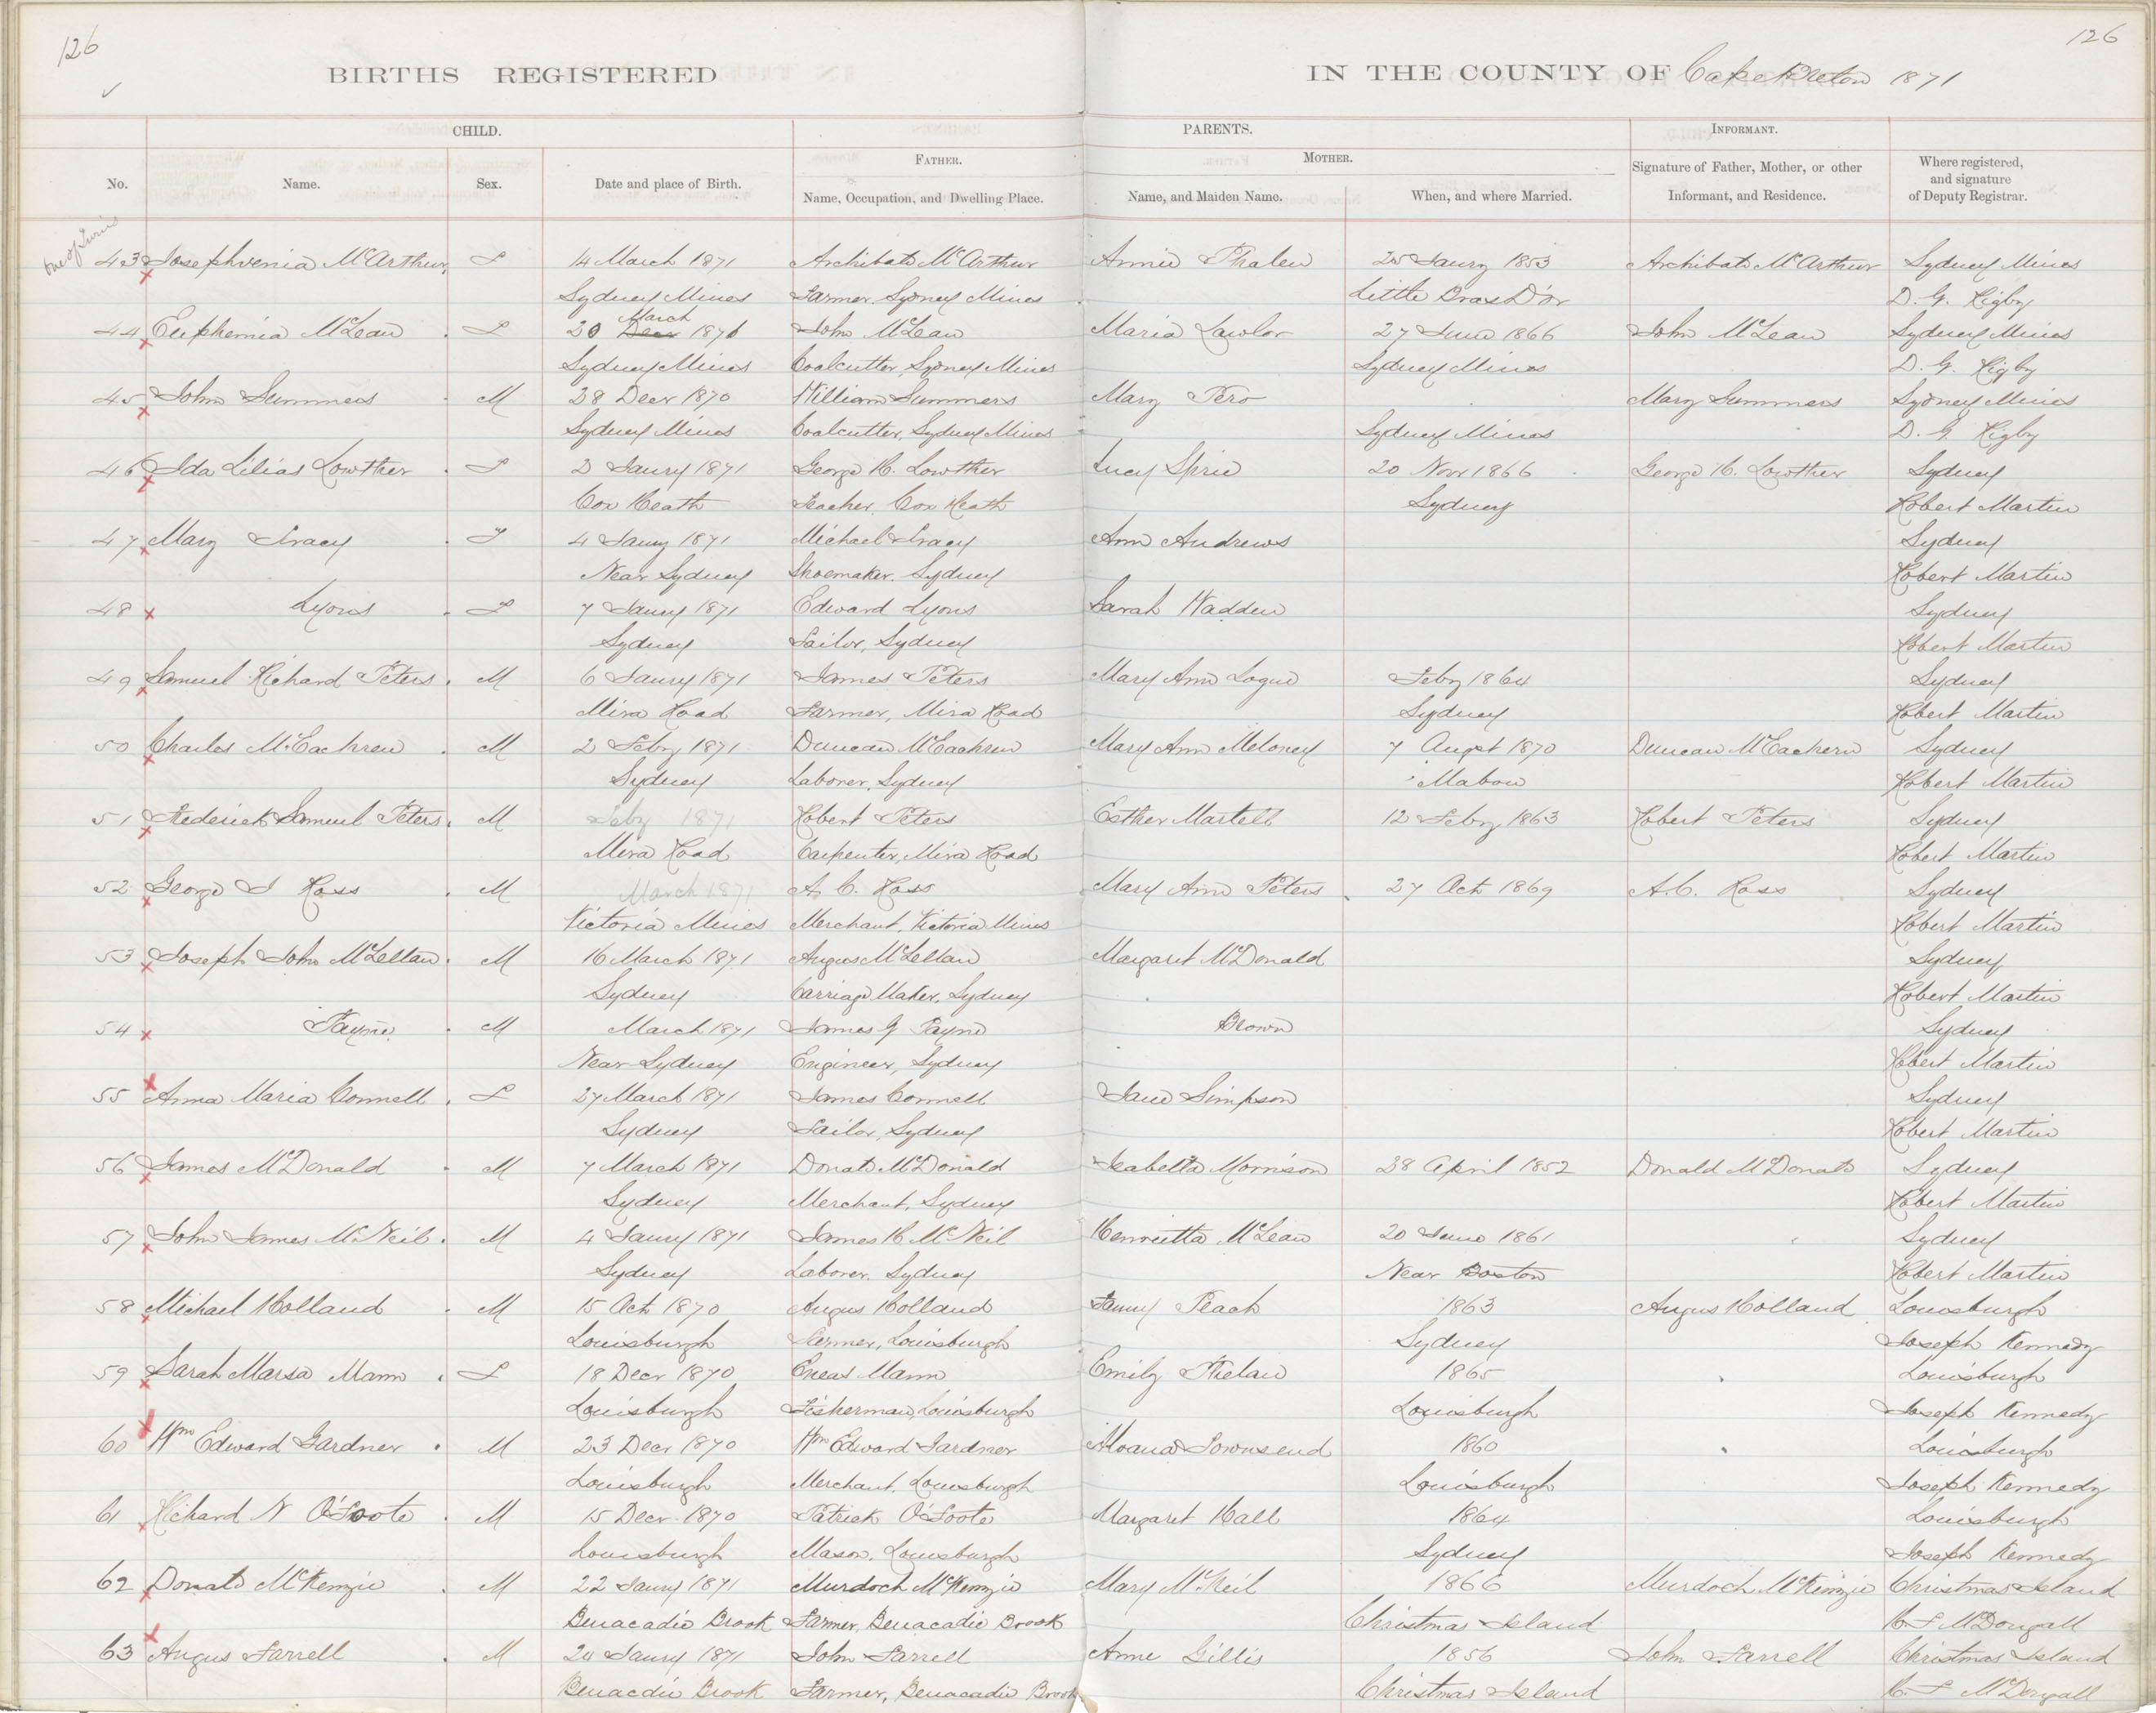 126
126
BIRTHS REGISTERED
IN THE COUNTY OF Cape Breton 1871
CHILD.
PARENTS.
INFORMANT.
FATHER.
MOTHER.
Signature of Father, Mother, or other
Where registered,
No.
Name.
Sex.
Date and place of Birth.
Name, Occupation, and Dwelling Place.
Name, and Maiden Name.
When, and where Married.
Informant, and Residence.
and signature
of Deputy Registrar.
One of Twins
43 Josephvenia McArthur, F 14 March 1871 Archibald McArthur Annie Phalen 25 Jaury 1853 Archibald McArthur Sydney Mines
Sydney Mines Farmer, Sydney Mines Little Bras D'or D. G. Rigby
March
44 Euphemia McLean F 20 Decr 1871 John McLean Maria Lawlor 27 June 1866 John McLean Sydney Mines
Sydney Mines Coalcutter, Sydney Mines Sydney Mines D. G. Rigby
45 John Summers M 28 Decr 1870 William Summers Mary Pero Mary Summers Sydney Mines
Sydney Mines Coalcutter, Sydney Mines Sydney Mines D. G. Rigby
46 Ida Lilias Lowther F 2 Jaury 1871 George H. Lowther Lucy Sprie 20 Novr 1866 George H. Lowther Sydney
Cox Heath Teacher, Cox Heath Sydney Robert Martin
47 Mary Tracy F 4 Jaury 1871 Michael Tracy Ann Andrews Sydney
Near Sydney Shoemaker, Sydney Robert Martin
48 Lyons F 7 Jaury 1871 Edward Lyons Sarah Wadden Sydney
Sydney Tailor, Sydney Robert Martin
49 Samuel Richard Peters M 6 Jaury 1871 James Peters Mary Ann Logue Feby 1864 Sydney
Mira Road Farmer, Mira Road Sydney Robert Martin
50 Charles McEachren M 2 Feby 1871 Duncan McEachren Mary Ann Meloney 7 Augst 1870 Duncan McEachern Sydney
Sydney Laborer, Sydney Mabou Robert Martin
51 Frederick Samuel Peters M Feby 1871 Robert Peters Esther Martell 12 Feby 1863 Robert Peters Sydney
Mira Road Carpenter, Mira Road Robert Martin
52 George I Ross M March 1871 A. C. Ross Mary Ann Peters 27 Oct 1869 A. C. Ross Sydney
Victoria Mines Merchant, Victoria Mines Robert Martin
53 Joseph John McLellan M 16 March 1871 Angus McLellan Margaret McDonald Sydney
Sydney Carriage Maker, Sydney Robert Martin
54 Payne M March 1871 James G Payne Brown Sydney
Near Sydney Engineer, Sydney Robert Martin
55 Anna Maria Connell F 27 March 1871 James Connell Jane Simpson Sydney
Sydney Tailor, Sydney Robert Martin
56 James McDonald M 7 March 1871 Donald McDonald Isabella Morrison 28 April 1852 Donald McDonald Sydney
Sydney Merchant, Sydney Robert Martin
57 John James McNeil M 4 Jaury 1871 James H McNeil Henrietta McLean 20 June 1861 Sydney
Sydney Laborer, Sydney Near Boston Robert Martin
58 Michael Holland M 15 Oct 1870 Angus Holland Fanny Peach 1863 Angus Holland Louisburgh
Louisburgh Farmer, Louisburgh Sydney Joseph Kennedy
59 Sarah Marsa Mann F 18 Decr 1870 Eneas Mann Emily Phelan 1865 Louisburgh
Louisburgh Fisherman, Louisburgh Louisburgh Joseph Kennedy
60 Wm Edward Gardner M 23 Decr 1870 Wm Edward Gardner Townsend 1860 Louisburgh
Louisburgh Merchant, Louisburgh Louisburgh Joseph Kennedy
61 Richard N O'Toote M 15 Decr 1870 Patrick O'Toote Margaret Hall 1864 Louisburgh
Louisburgh Mason, Louisburgh Sydney Joseph Kennedy
62 Donald McKenzie M 22 Jaury 1871 Murdoch McKenzie Mary McNeil 1866 Murdoch McKenzie Christmas Island
Benacadie Brook Farmer, Benacadie Brook Christmas Island H. F McDougall
63 Angus Farrell M 24 Jaury 1871 John Farrell Anne Gillis 1856 John Farrell Christmas Island
Benacdie Brook Farmer, Benacadie Brook Christmas Island H. F McDougall